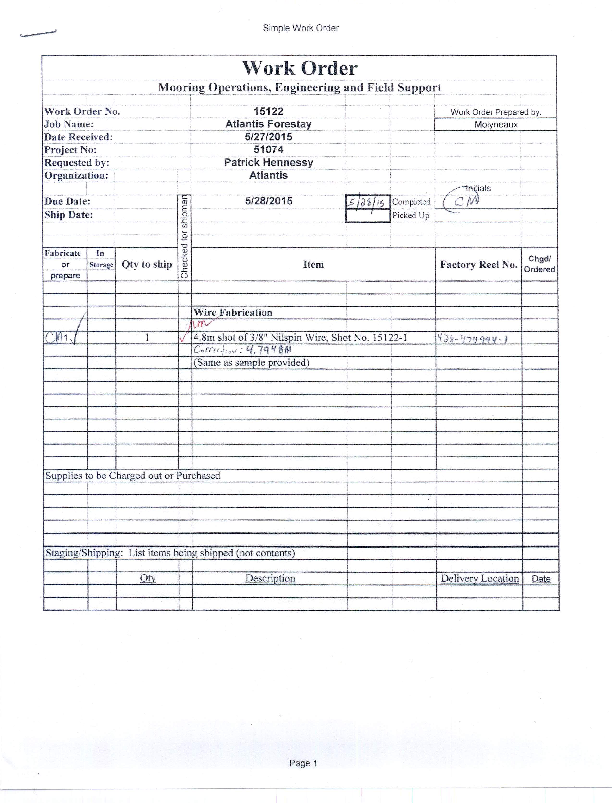 Simple Work Order
Work Order
Mooring Operations, Engineering and Field Support
Work Order No. 15122 Work Order Prepared by:
Job Name: Atlantis Forestay Molyneaux
Date Received: 5/27/2015
Project No: 51074
Requested by: Patrick Hennessy
Organization: Atlantis
Initials
Due Date: 5/28/2015 5/28/15 Completed CM
Ship Date: Picked Up
Checked for shipment
Fabricate or prepare In Storage Qty to ship Item Factory Reel No. Chgd/ Ordered
Wire Fabrication
CM 1 4.8m shot of 3/8" Nilspin Wire, Shot No. 15122-1
Correction: 4.7948M
(Same as sample provided)
Supplies to be Charged out or Purchased
Staging/Shipping: List items being shipped (not contents)
Qty Description Delivery Location Date
Page 1